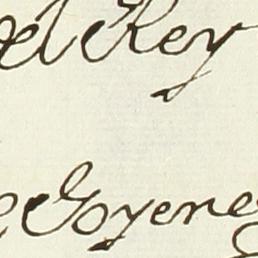 el Rey
Goyene